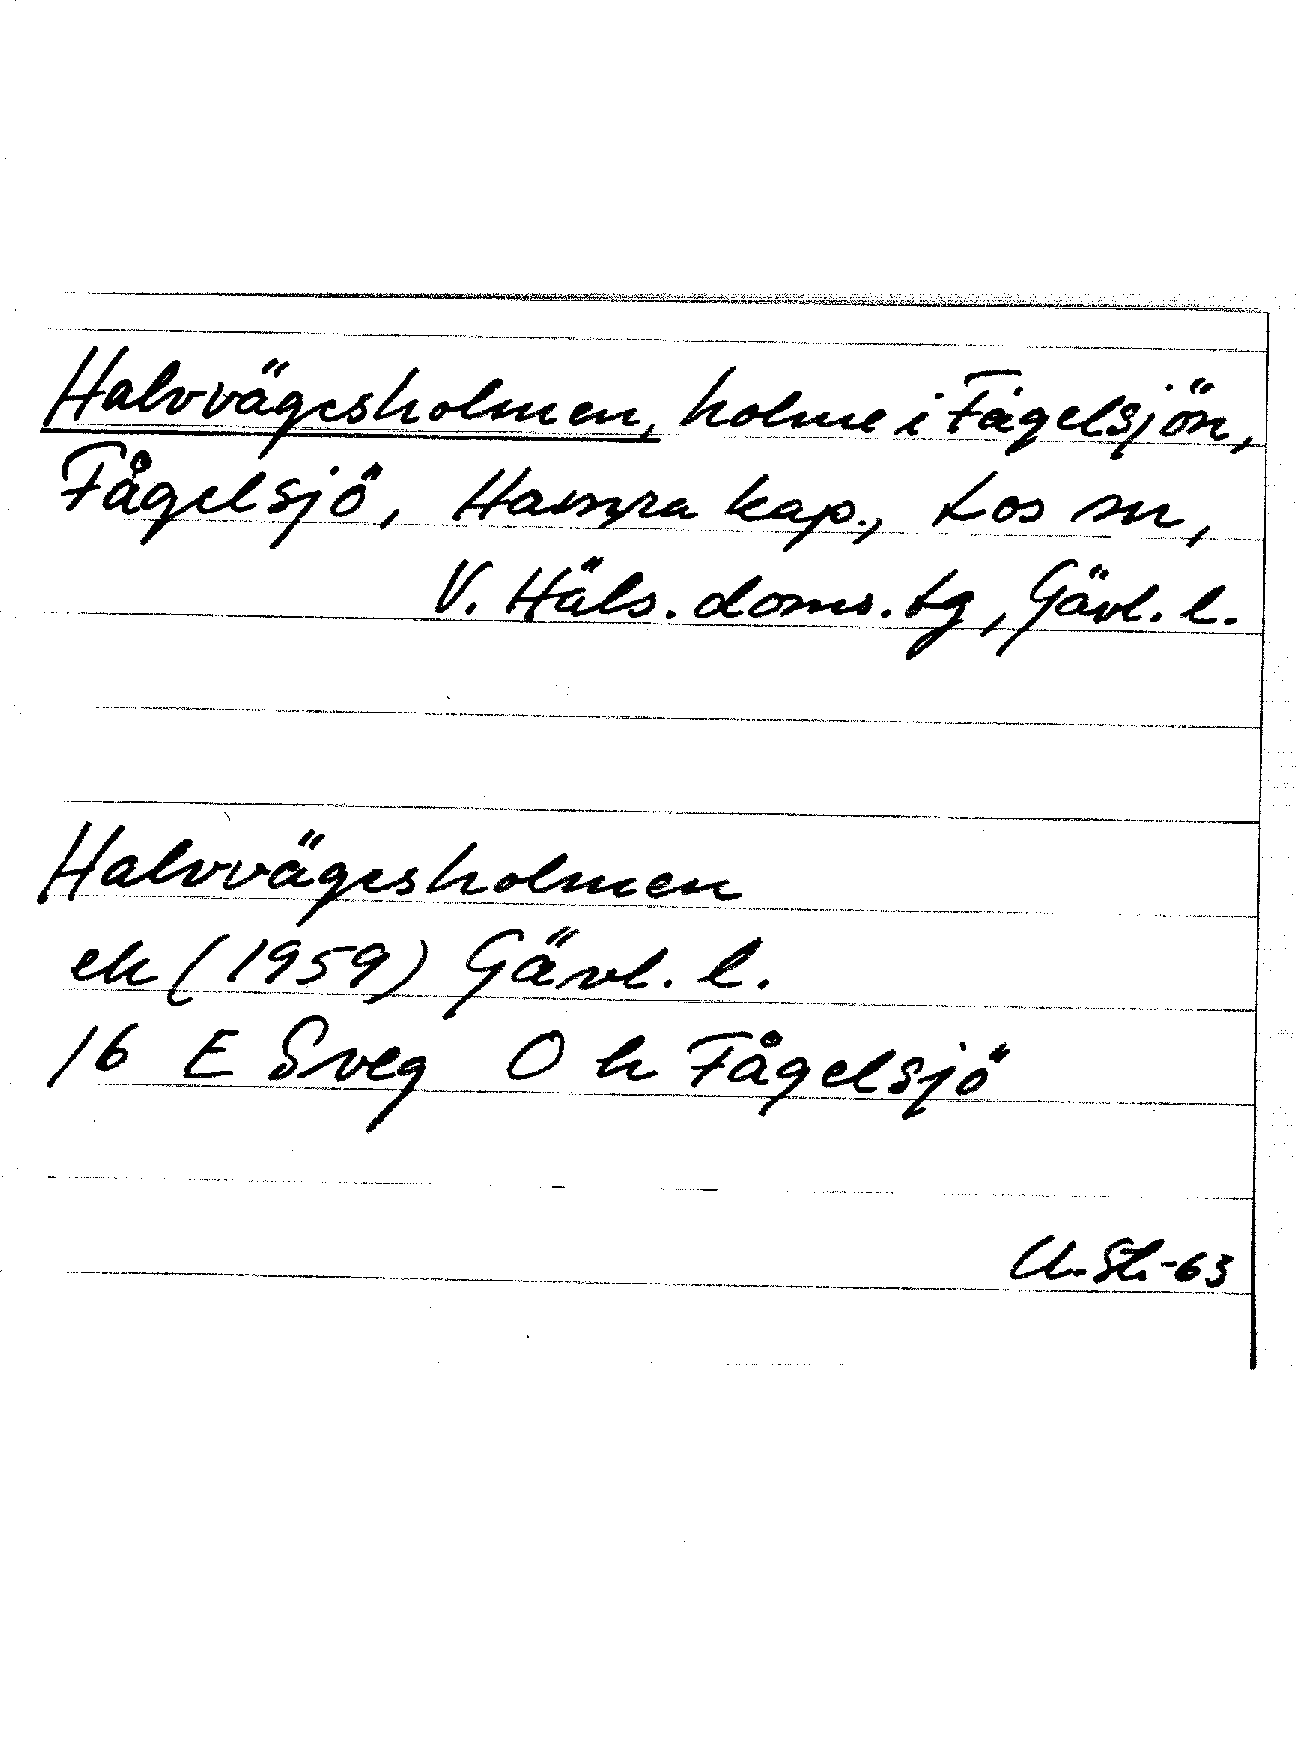 Halvvägesholmen, holme i Fågelsjön,
Fågelsjö, Hamra kap., Los sn,
V. Häls. doms. tg, Gävl. l.
Halvvägesholmen
ek (1959) Gävl. l.
16 E Sveg O h Fågelsjö
U. St. -63